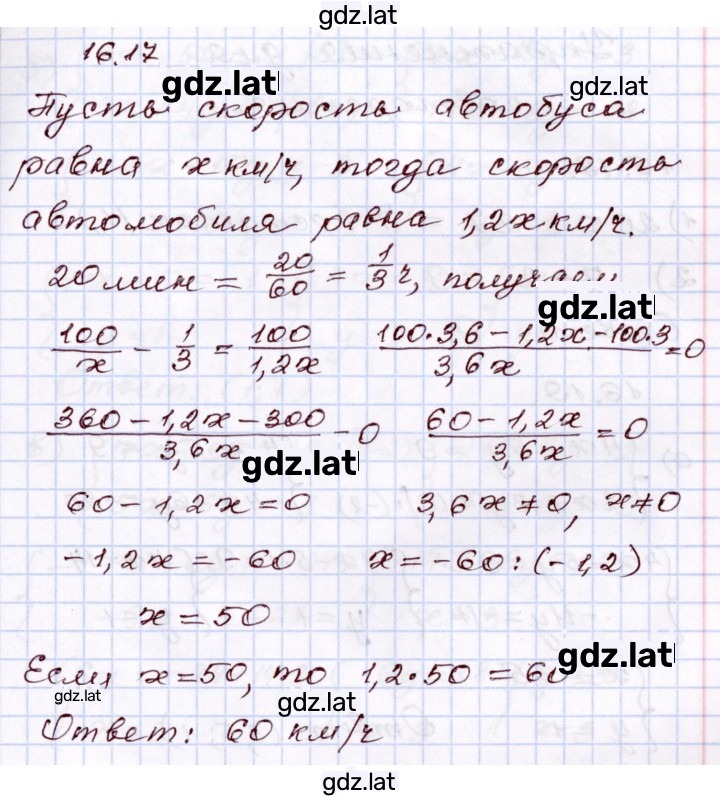 gdz.lat
16.17
gdz.lat
Пусть скорость автобуса
равна x км/ч, тогда скорость
автомобиля равна 1,2x км/ч.
20 мин = 20/60 = 1/3 ч, получаем
gdz.lat
100/x - 1/3 = 100/1,2x (100·3,6 - 1,2x - 100·3)/3,6x = 0
(360 - 1,2x - 300)/3,6x = 0 (60 - 1,2x)/3,6x = 0
gdz.lat
60 - 1,2x = 0 3,6x ≠ 0, x ≠ 0
-1,2x = -60 x = -60 : (-1,2)
x = 50
gdz.lat
Если x = 50, то 1,2·50 = 60
gdz.lat
gdz.lat
Ответ: 60 км/ч
gdz.lat